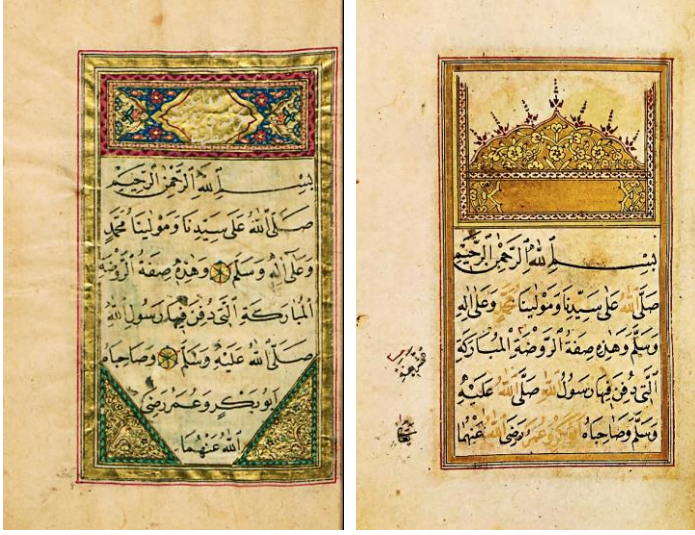 بِسْمِ ٱللّٰهِ ٱلرَّحْمٰنِ ٱلرَّحِيمِ
صَلَّى ٱللّٰهُ عَلٰى سَيِّدِنَا وَمَوْلٰينَا مُحَمَّدٍ
وَعَلٰى اٰلِهٖ وَسَلَّمَ وَهٰذِهٖ صِفَةُ ٱلرَّوْضَةِ
ٱلْمُبَارَكَةِ ٱلَّتِى دُفِنَ فِيهَا رَسُولُ ٱللّٰهِ
صَلَّى ٱللّٰهُ عَلَيْهِ وَسَلَّمَ وَصَاحِبَاهُ
اَبُو بَكْرٍ وَعُمَرُ رَضِىَ
ٱللّٰهُ عَنْهُمَا
بِسْمِ ٱللّٰهِ ٱلرَّحْمٰنِ ٱلرَّحِيمِ
صَلَّى ٱللّٰهُ عَلٰى سَيِّدِنَا وَمَوْلٰينَا مُحَمَّدٍ وَعَلٰى اٰلِهٖ
وَسَلَّمَ وَهٰذِهٖ صِفَةُ ٱلرَّوْضَةِ ٱلْمُبَارَكَةِ
ٱلَّتِى دُفِنَ فِيهَا رَسُولُ ٱللّٰهِ صَلَّى ٱللّٰهُ عَلَيْهِ
وَسَلَّمَ وَصَاحِبَاهُ اَبُو بَكْرٍ وَعُمَرُ رَضِىَ ٱللّٰهُ عَنْهُمَا